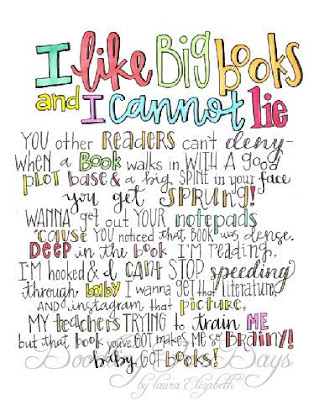 I like Big books
and I cannot lie
YOU other READERS can't deny-
WHEN a Book walks in WITH a good
PLOT base & a big SPINE in your face
you get SPRUNG!
WANNA get out YOUR notepads
'cause YOU noticed that BOOK was dense.
DEEP in the book I'M READING,
I'M hooked & I CAN'T STOP speeding
through baby I wanna get that literature
AND instagram that picture,
MY teacher's TRYING to train ME
but that book you've GOT makes ME so BRAINY!
baby GOT books!
by Laura Elizabeth